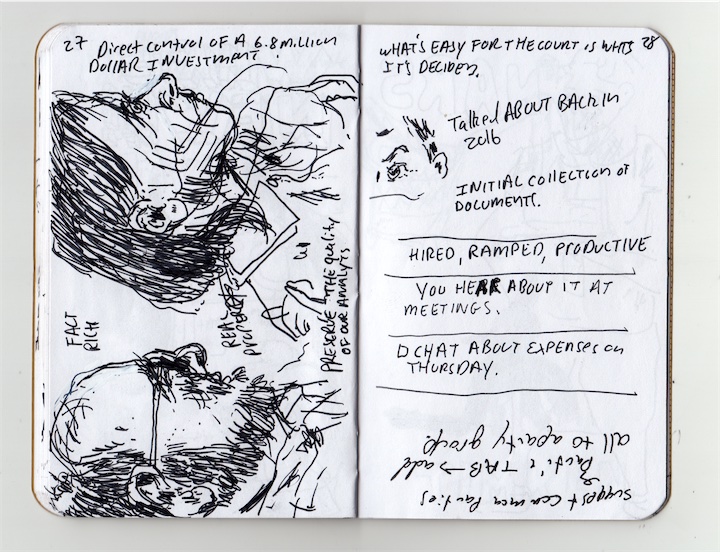 27
Direct control OF A 6.8 Million
DOLLAR INVESTMENT.
FACT
RICH
REAL
PROPERTY
PRESERVE THE quality
OF OUR ANALYTS
28
WHAT'S EASY FOR THE COURT IS WHTS
IT'S DECIDED.
Talked ABOUT BACK IN
2016
INITIAL COLLECTION OF
DOCUMENTS.
HIRED, RAMPED, PRODUCTIVE
YOU HEAR ABOUT IT AT
MEETINGS.
CHAT ABOUT EXPENSES ON
THURSDAY.
suggest common Parties
TAB → add
all to aparty group.